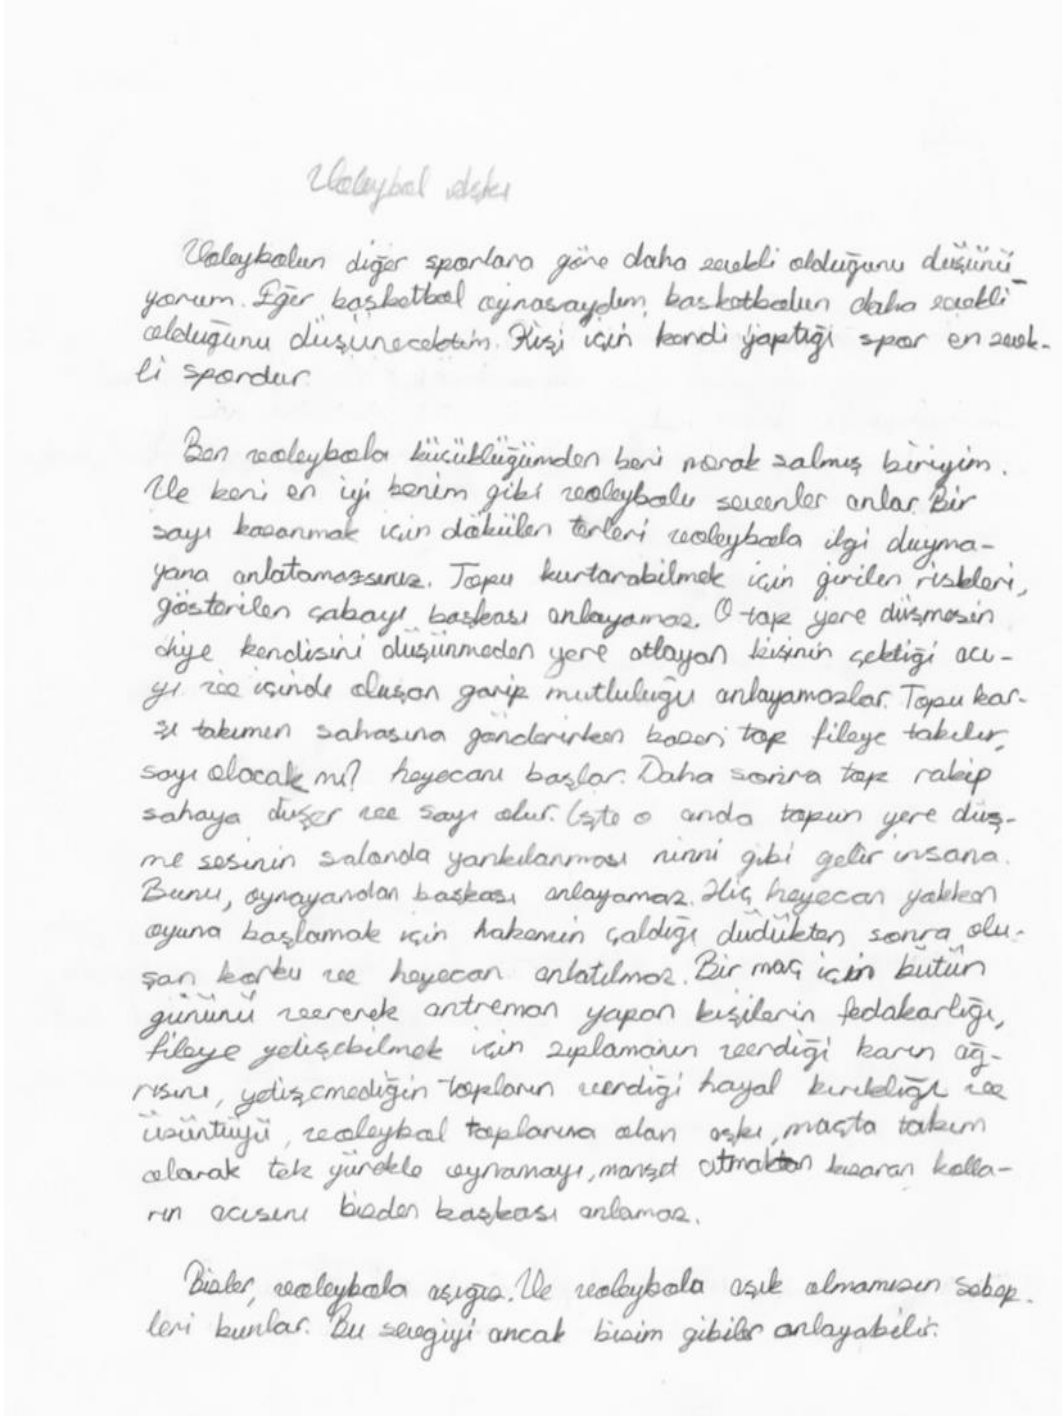 Voleybol aşkı
Voleybolun diğer sporlara göre daha zevkli olduğunu düşünü-
yorum. Eğer basketbol oynasaydım, basketbolun daha zevkli
olduğunu düşünecektim. Kişi için kendi yaptığı spor en zevk-
li spordur.
Ben voleybola küçüklüğümden beri merak salmış biriyim.
Ve beni en iyi benim gibi voleybolu sevenler anlar. Bir
sayı kazanmak için dökülen terleri voleybola ilgi duyma-
yana anlatamazsınız. Topu kurtarabilmek için girilen riskleri,
gösterilen çabayı başkası anlayamaz. O top yere düşmesin
diye kendisini düşünmeden yere atlayan kişinin çektiği acı-
yı ve içinde oluşan garip mutluluğu anlayamazlar. Topu kar-
şı takımın sahasına gönderirken bazen top fileye takılır,
sayı olacak mı? heyecanı başlar. Daha sonra top rakip
sahaya düşer ve sayı olur. İşte o anda topun yere düş-
me sesinin salonda yankılanması ninni gibi gelir insana.
Bunu, oynayandan başkası anlayamaz. Hiç heyecan yokken
oyuna başlamak için hakemin çaldığı düdükten sonra olu-
şan korku ve heyecan anlatılmaz. Bir maç için bütün
gününü vererek antreman yapan kişilerin fedakarlığı,
fileye yetişebilmek için zıplamanın verdiği karın ağ-
rısını, yetişemediğin topların verdiği hayal kırıklığı ve
üzüntüyü, voleybol toplarına olan aşkı, maçta takım
olarak tek yürekle oynamayı, manşet atmaktan kızaran kolla-
rın acısını bizden başkası anlamaz.
Bizler, voleybola aşığız. Ve voleybola aşık olmamızın sebep-
leri bunlar. Bu sevgiyi ancak bizim gibiler anlayabilir.